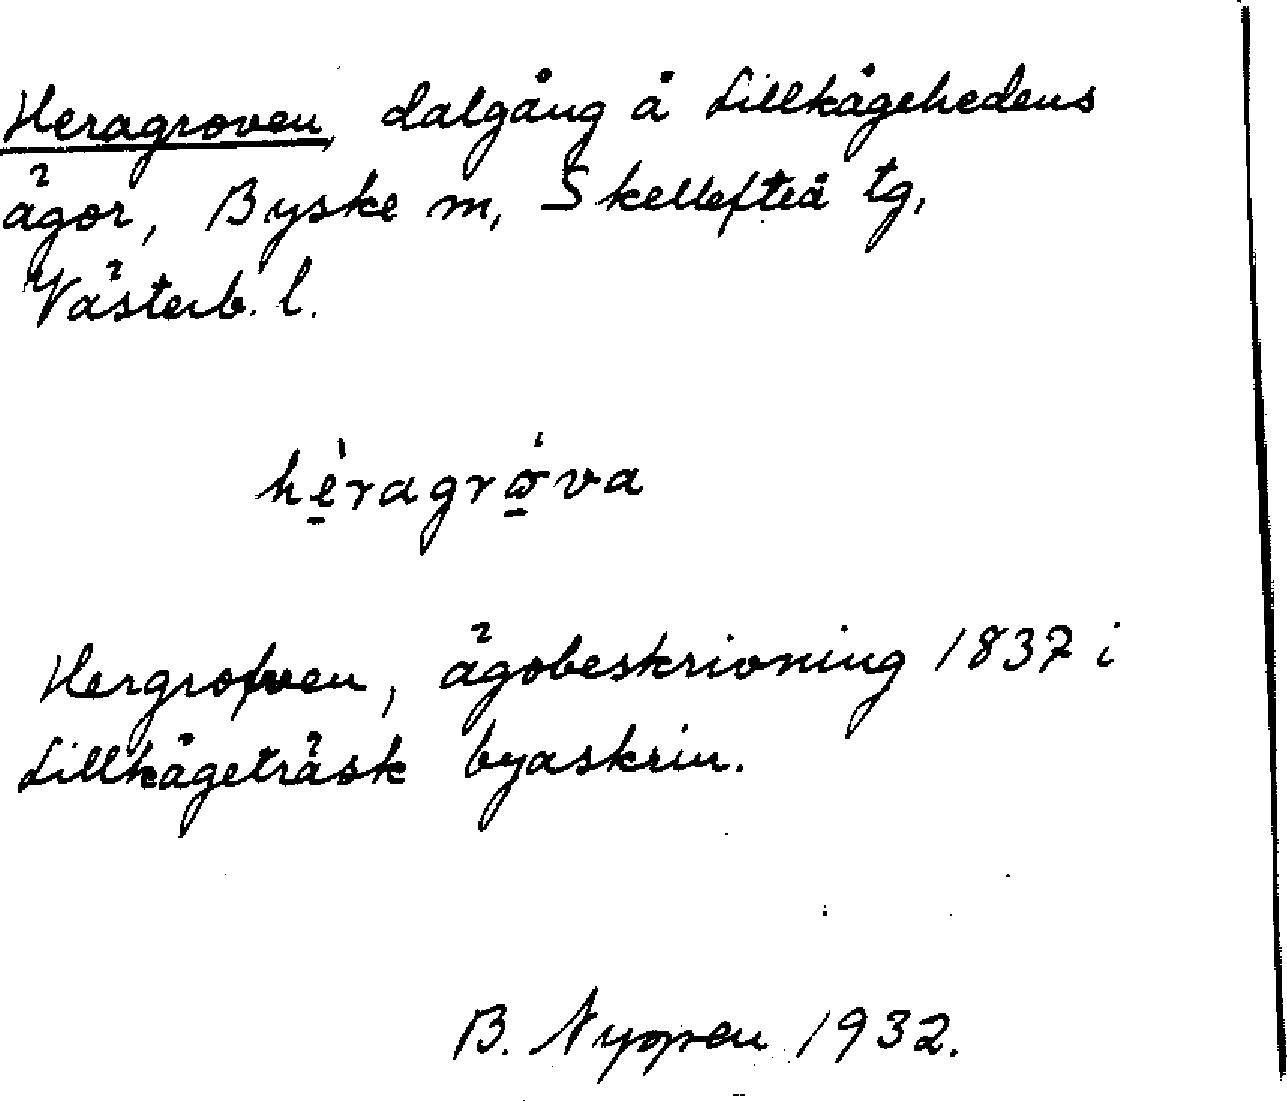 Heragroven, dalgång å Lillkågehedens
ägor, Byske m, Skellefteå tg,
Västerb. l.
hèragrớva
Hergrofven, ägobeskrivning 1837 i
Lillkågeträsk byaskrin.
B. Nyppen 1932.